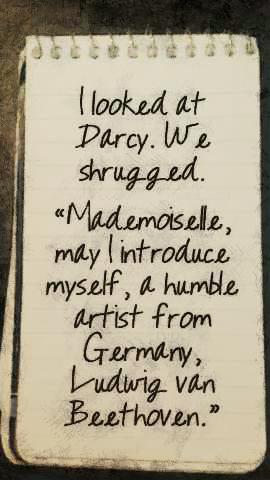 I looked at
Darcy. We
shrugged.
“Mademoiselle,
may I introduce
myself, a humble
artist from
Germany,
Ludwig van
Beethoven.”